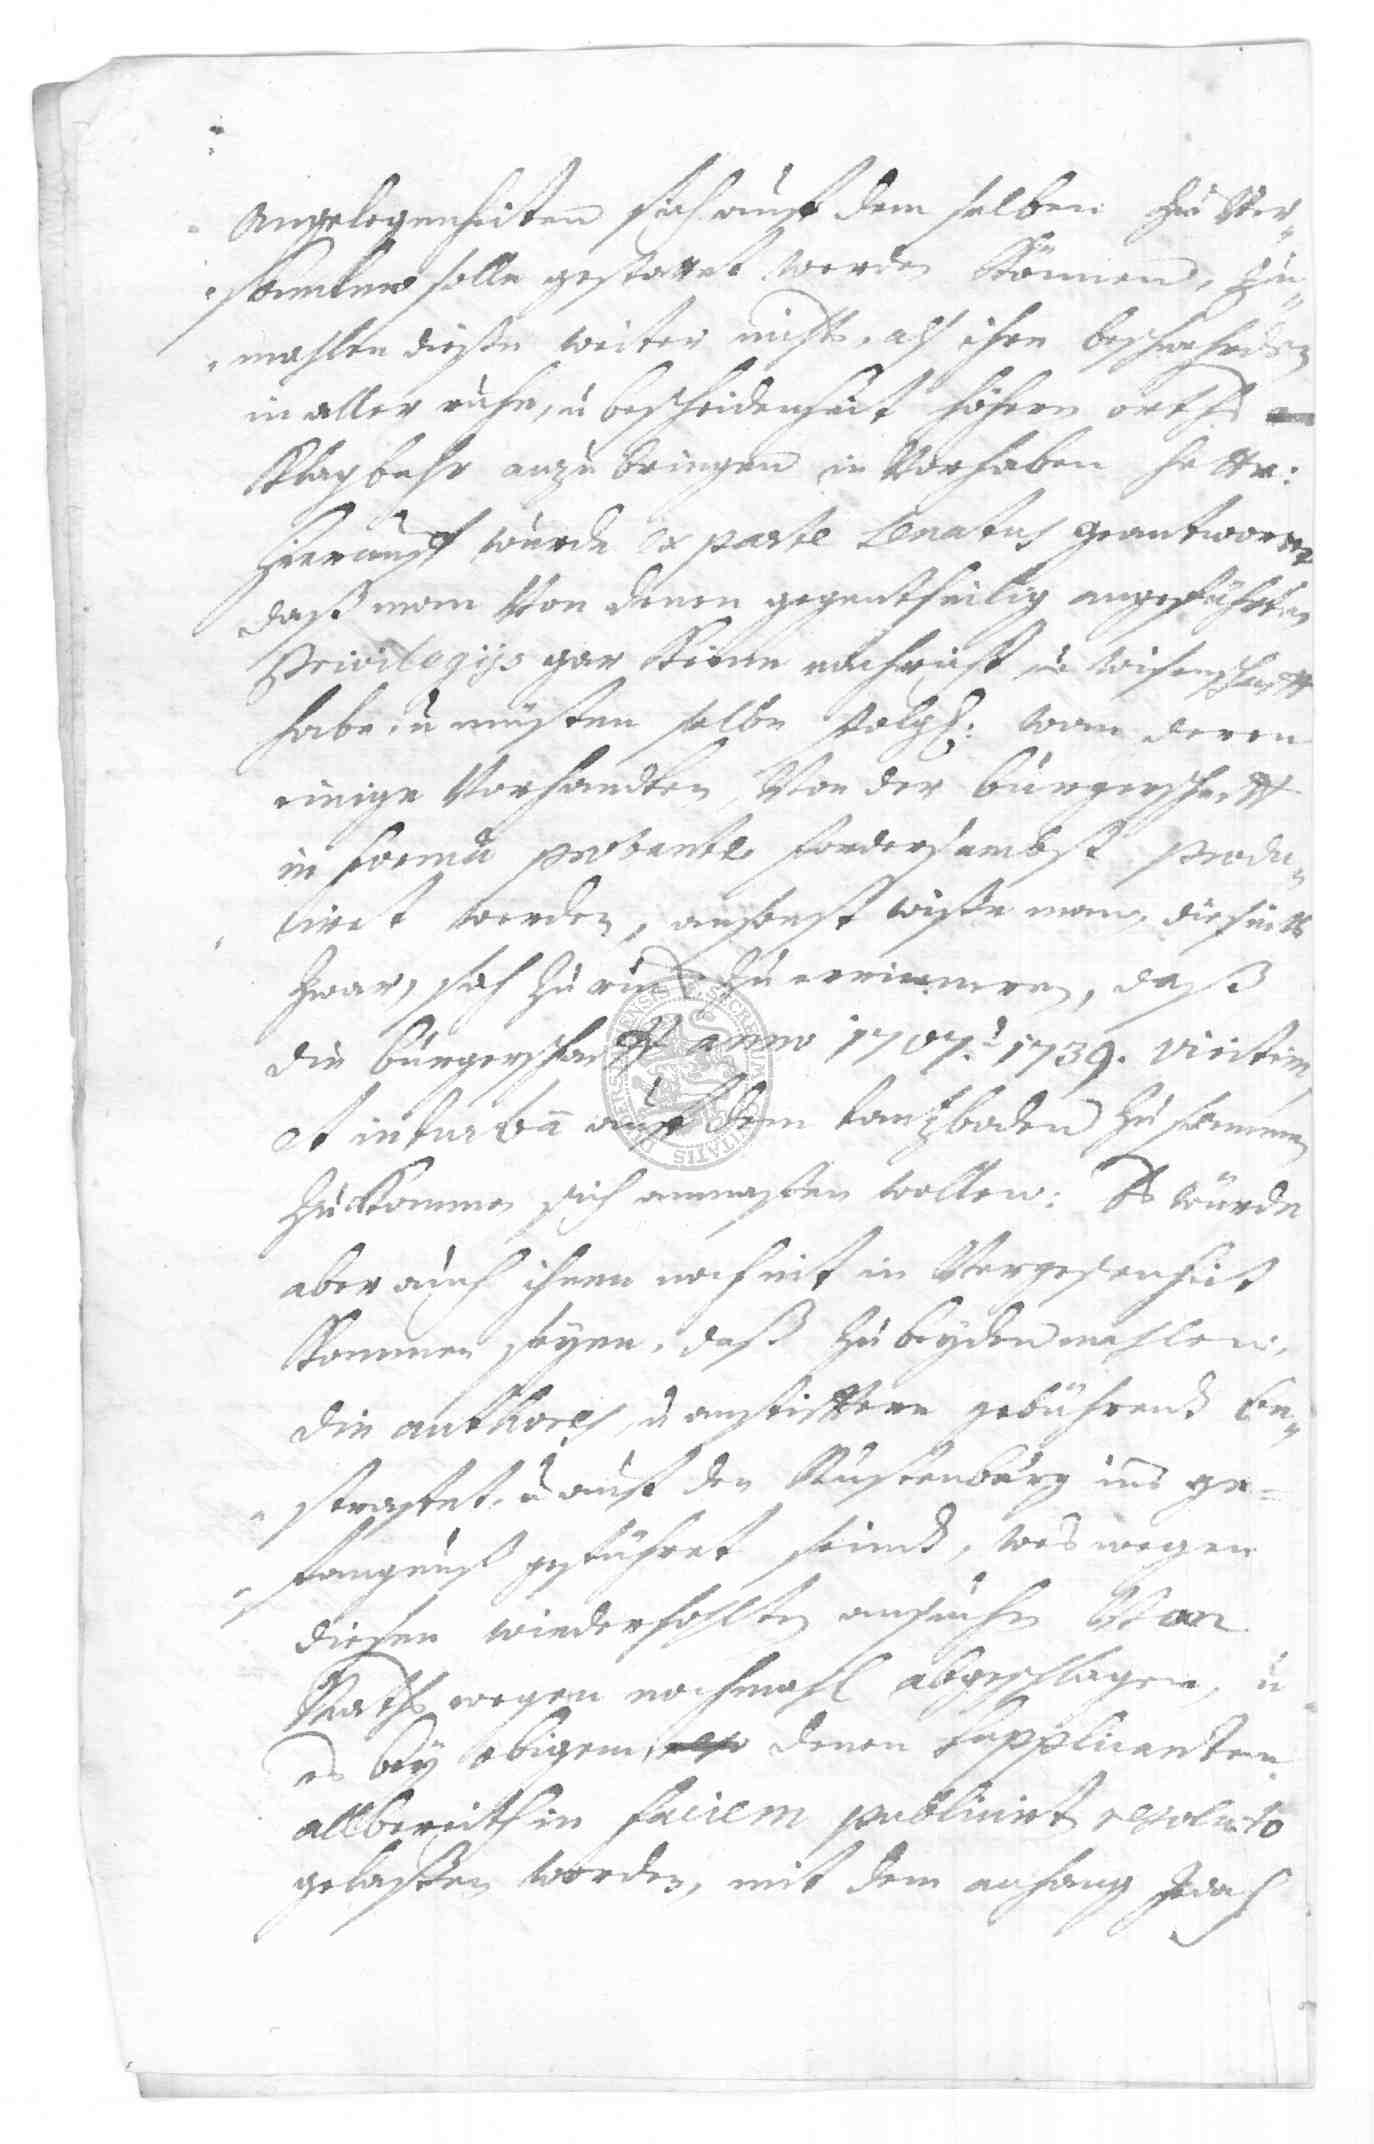 angelegenheiten sich auff dem selben zu ver„
„samlen solle gestattet werden können, zu„
„mahlen dieße weiter nichts, als ihre beschwehrden
in aller ruhe, ŭ bescheidenheit höhern orths
klagbahr anzubringen in vorhaben hette:
Hierauff wurde ex parte senatus geantwortet
daß man von denen gegentheilig angeführten
Privilegijs gar keine nachricht ŭ wisenschafft
habe, ŭ müsten selbe folgl: wan deren
einige vorhandten, von der bürgerschafft
in forma probante fordersambst produ„
ciret werden, ansonst wiste man, dießeits
zwar, sich zurück zu errinneren, daß
die bürgerschafft anno 1707. ŭ 1739. viritim
et in turba auff dem tantzboden zusammen
zukommen sich anmaßen wollen: Es würde
aber auch ihnen noch nit in vergeßenheit
kommen seyen, daß zu beyden mahlen,
die authores, ŭ anstifftere gebührend be„
„straffet, ŭ auff den Rustenburg ins ge=
„fangnuß geführet seind, weswegen
diesen wiederhohlten ansuchen von
Raths wegen nochmahl abgeschlagen, ŭ
es bey obigem, denen supplicanten
allbereith in faciem publicirt resoluto
gelaßen worden, mit dem anhang jedoch
SECRETUM CIVITATIS